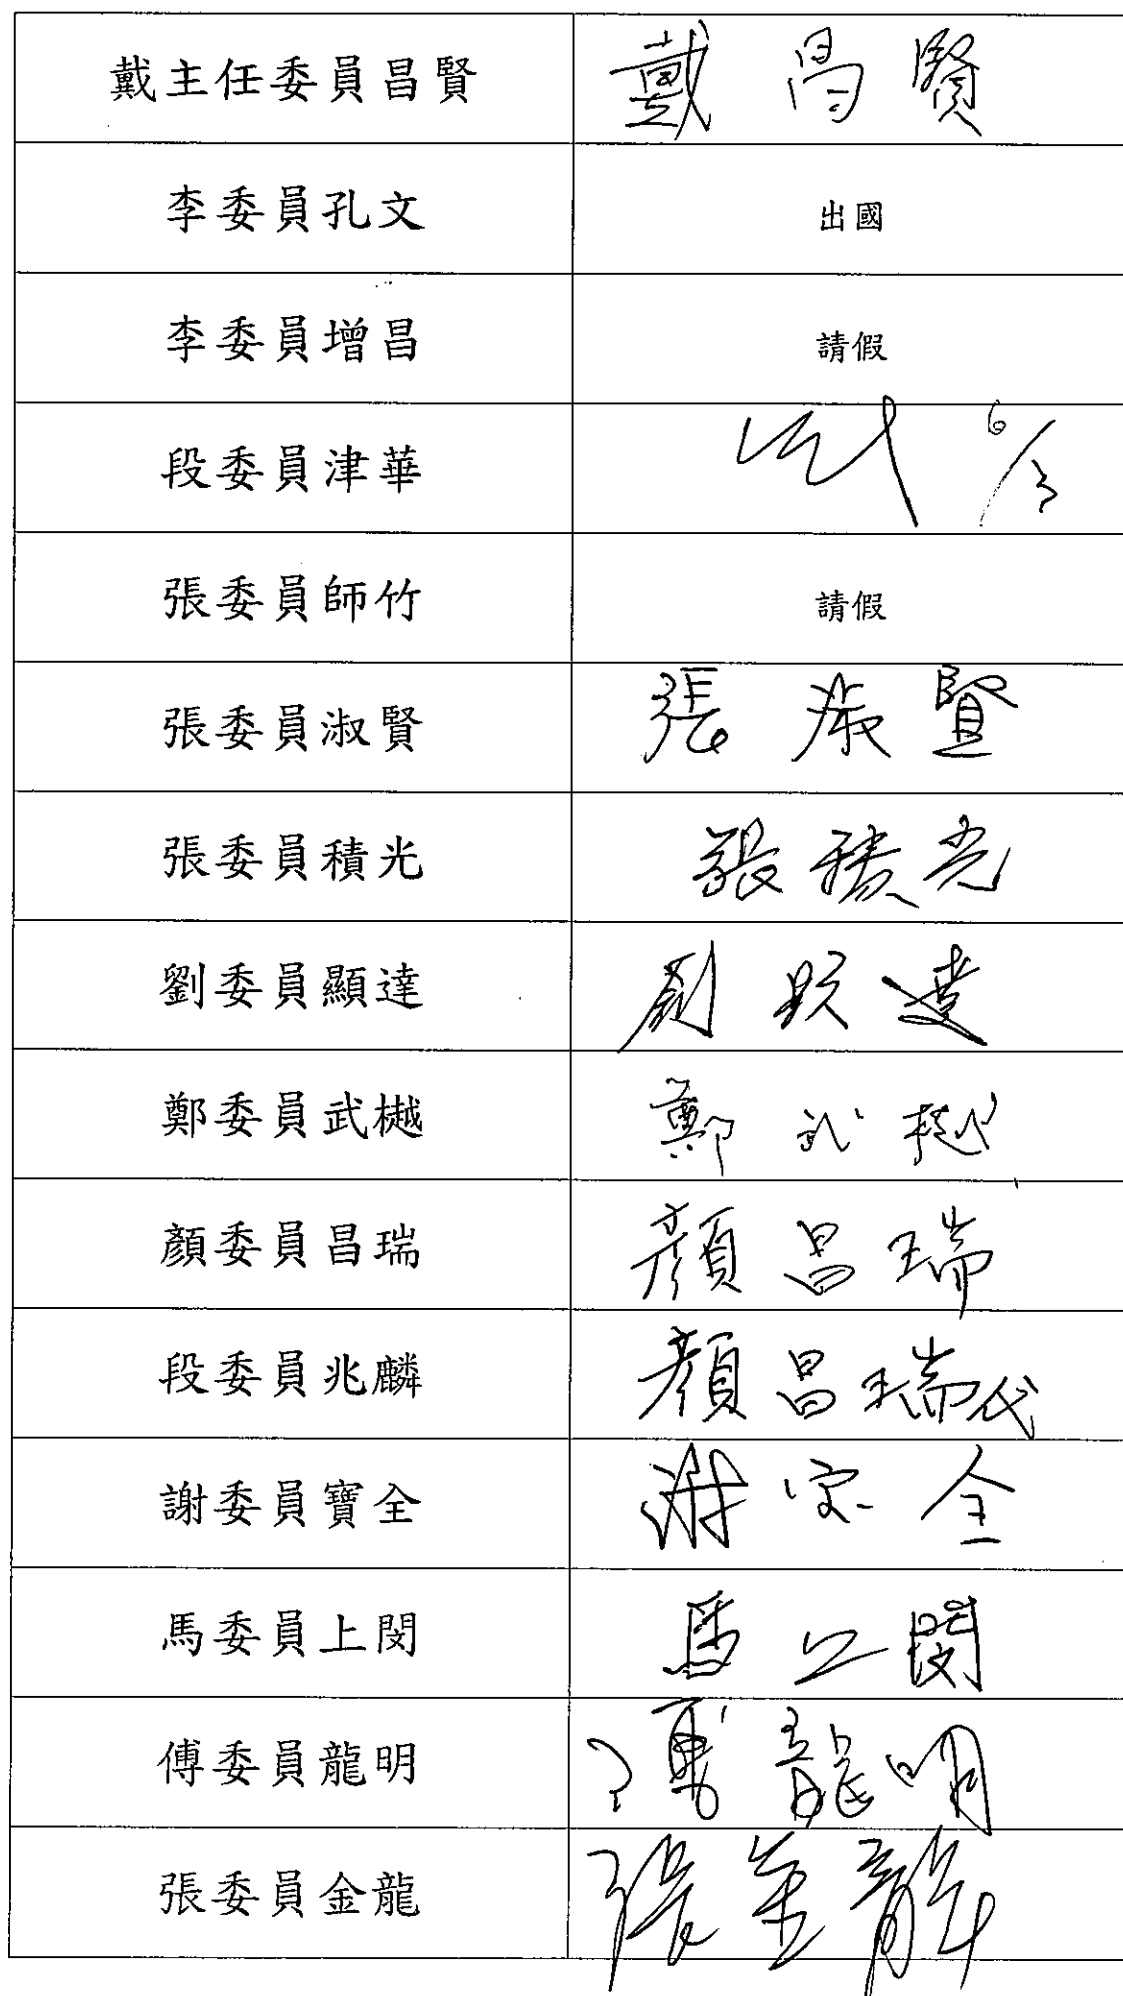 戴主任委員昌賢 戴昌賢
李委員孔文 出國
李委員增昌 請假
段委員津華
張委員師竹 請假
張委員淑賢 張淑賢
張委員積光 張積光
劉委員顯達 劉顯達
鄭委員武樾 鄭武樾
顏委員昌瑞 顏昌瑞
段委員兆麟 顏昌瑞代
謝委員寶全 謝宝全
馬委員上閔 馬上閔
傅委員龍明 傅龍明
張委員金龍 張金龍